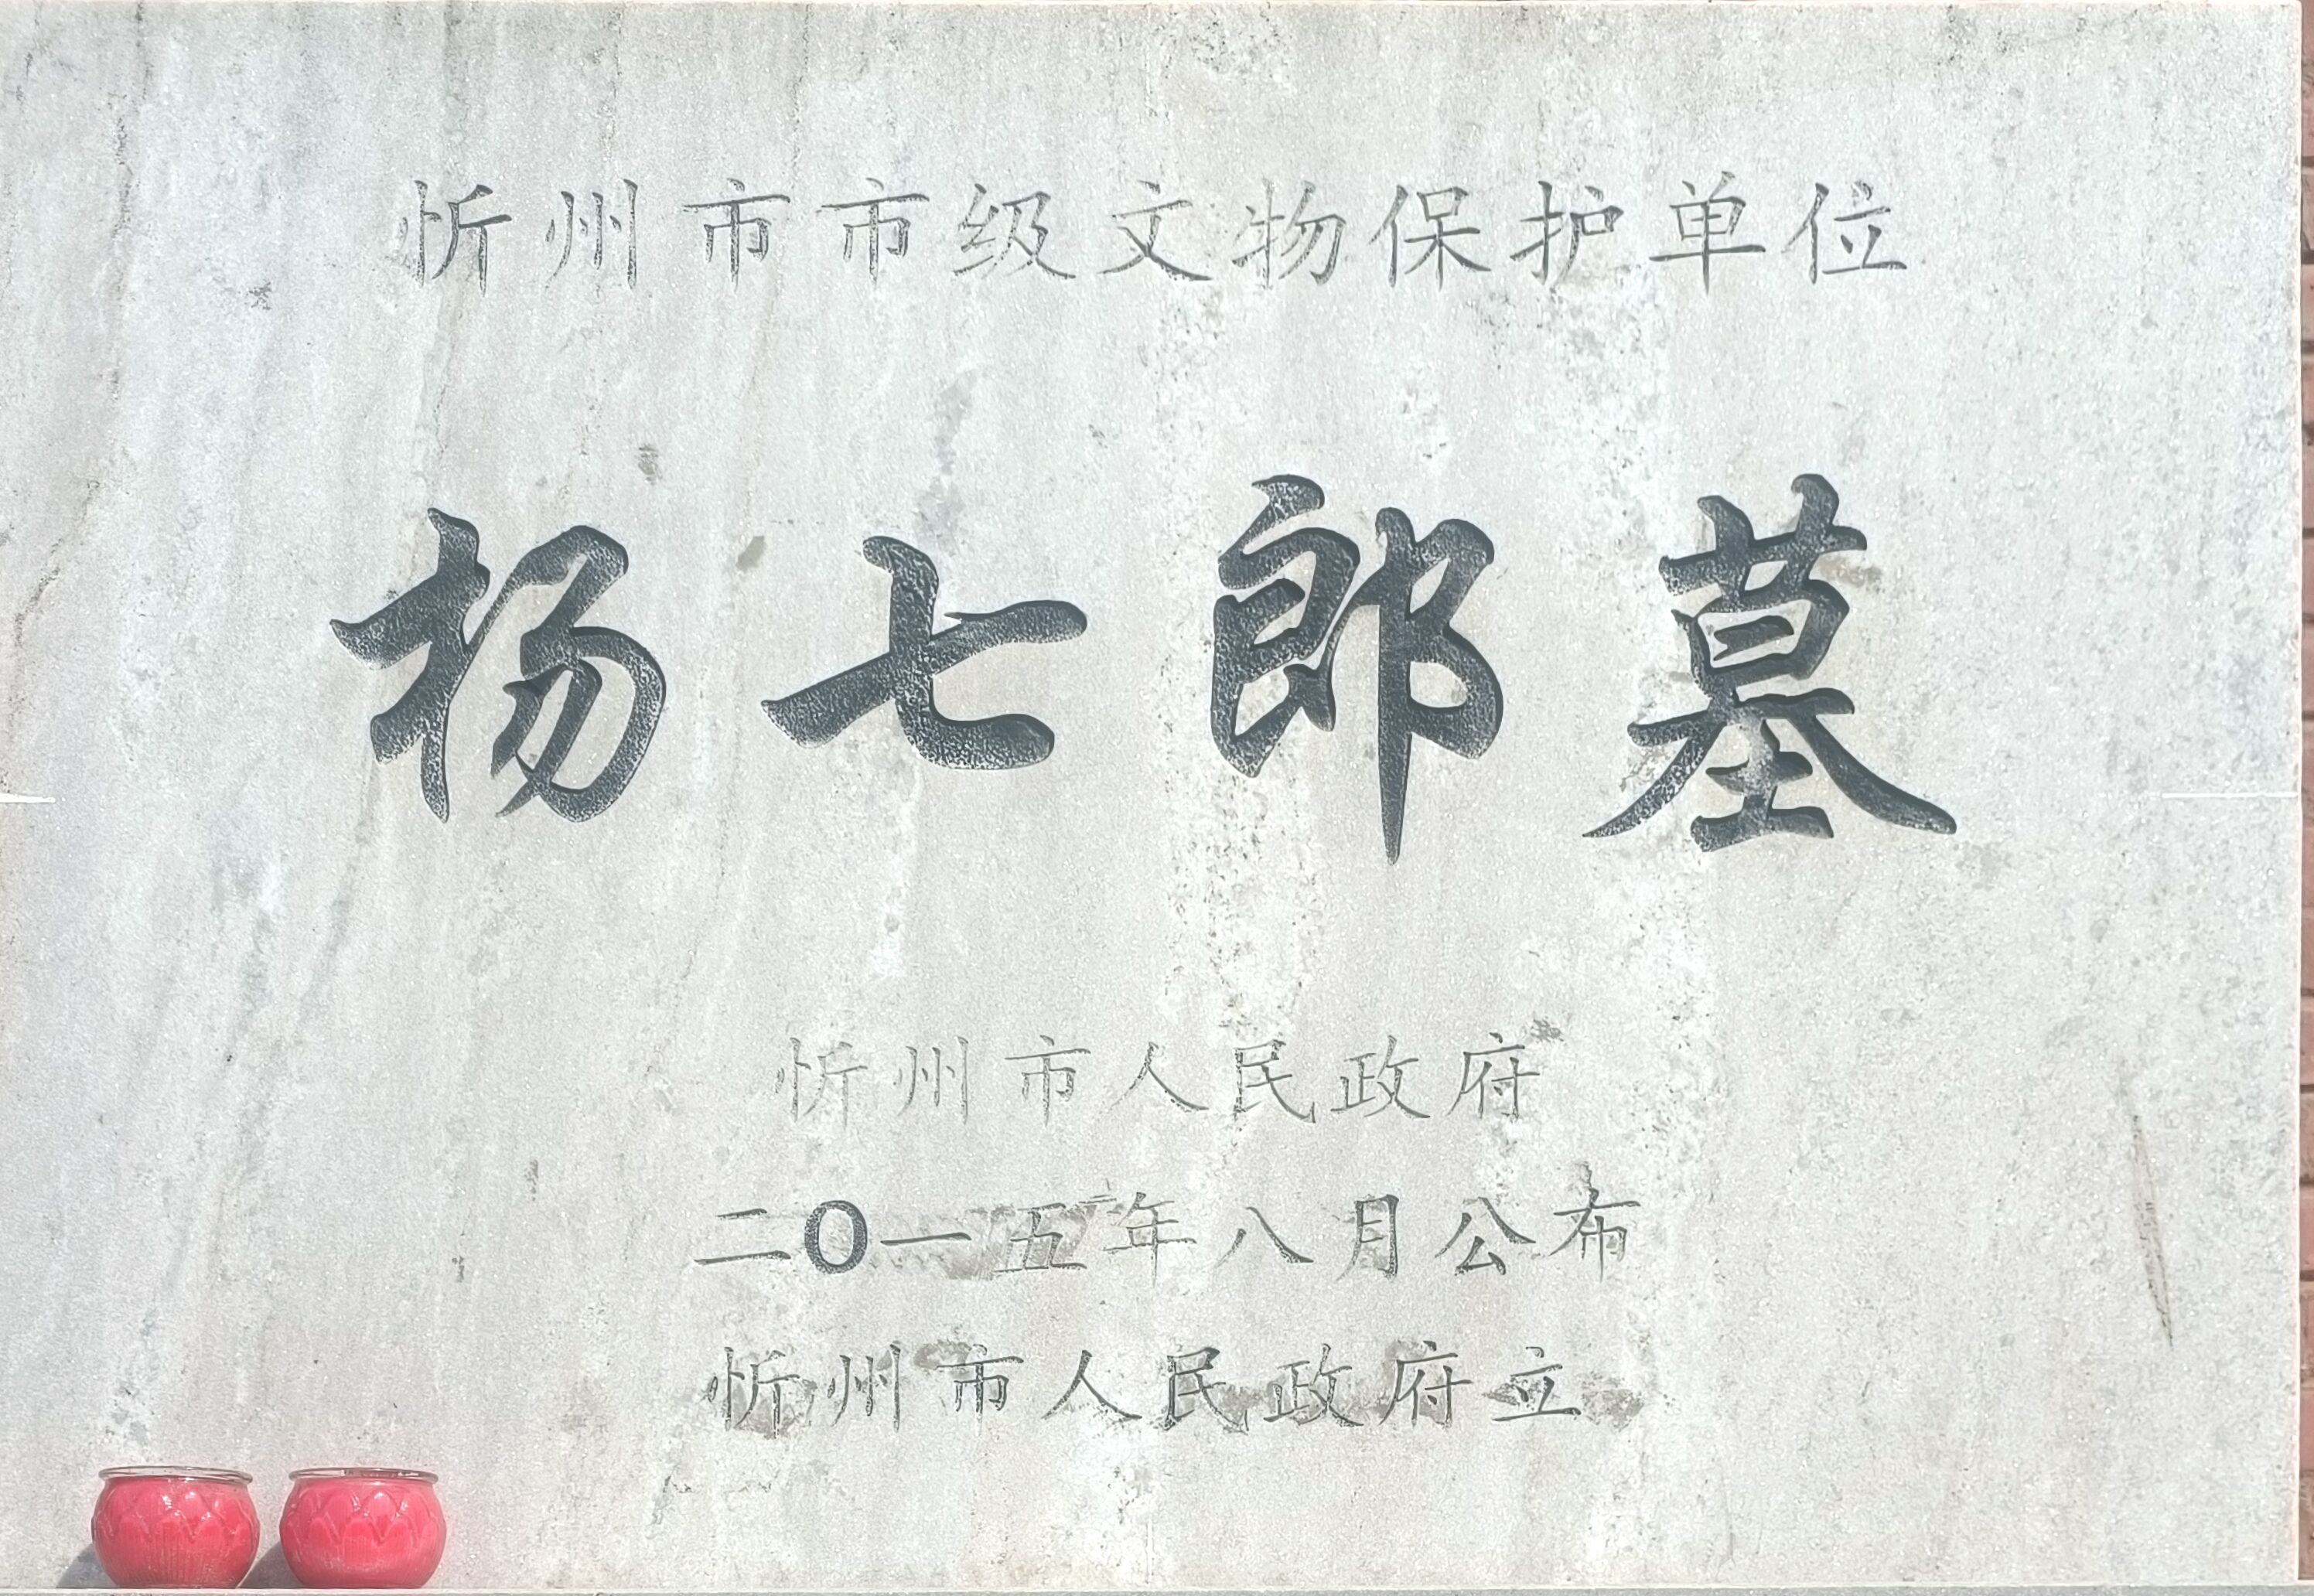 忻州市市级文物保护单位
杨七郎墓
忻州市人民政府
二O一五年八月公布
忻州市人民政府立